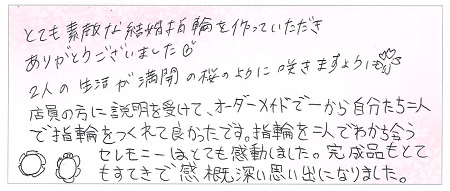 とても素敵な結婚指輪を作っていただき
ありがとうございました
2人の生活が満開の桜のように咲きますように
店員の方に説明を受けて、オーダーメイドで一から自分たち二人
で指輪をつくれて良かったです。指輪を二人でわかち合う
セレモニーは、とても感動しました。完成品もとて
もすてきで感慨深い思い出になりました。